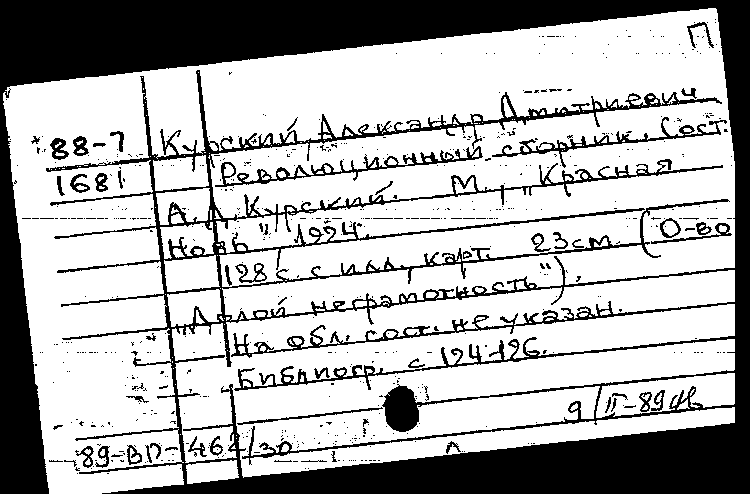 П
88-7 Курский, Александр Дмитриевич
1681 Революционный сборник. Сост.
А.Д. Курский. М., „Красная
Новь", 1924.
128 с. с илл., карт. 23 см. (О-во
„Долой неграмотность").
На обл. сост. не указан.
Библиогр. с 124-126.
9/II-89
89-ВП-462/30